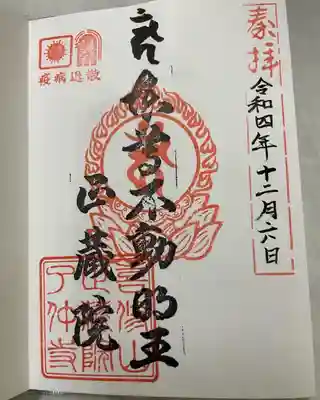 奉拝
令和四年十二月六日
不動明王
正蔵院
疫病退散
了仲寺